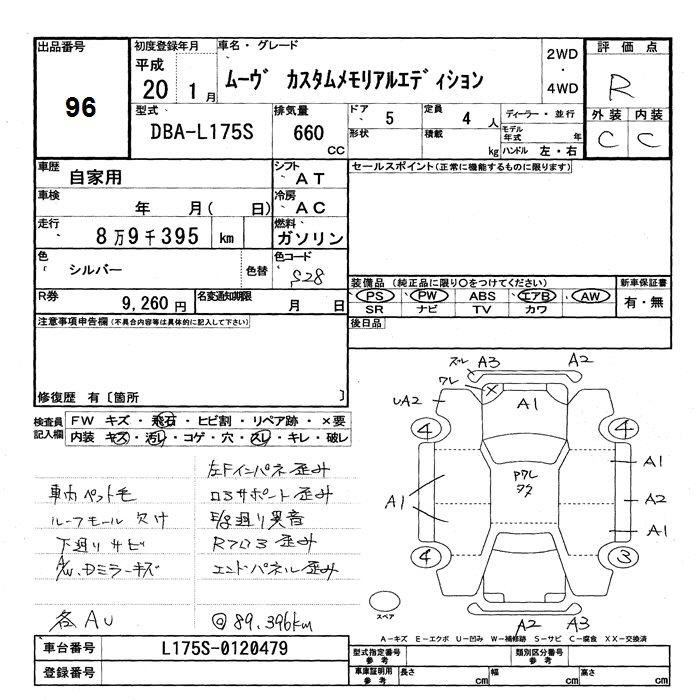 出品番号
96
初度登録年月
平成
20 1 月
車名・グレード
ムーヴ カスタムメモリアルエディション
2WD
・
4WD
評価点
R
外装 内装
C C
型式
DBA-L175S
排気量
660
cc
ドア
5
形状
定員
4 人
積載
kg
ディーラー・並行
モデル年式 年
ハンドル 左・右
車歴
自家用
シフト
AT
セールスポイント(正常に機能するものに限ります)
車検
年 月( 日)
冷房
AC
走行
8万9千395 km
燃料
ガソリン
色
シルバー
色替
色コード
S28
装備品 (純正品に限り○をつけてください)
新車保証書
PS PW ABS エアB AW
有・無
SR ナビ TV カワ
R券
9,260 円
名変通知期限
月 日
後日品
注意事項申告欄(不具合内容等は具体的に記入して下さい)
修復歴 有〔箇所 〕
検査員記入欄
FW キズ・飛石・ヒビ割・リペア跡・×要
内装 キズ・汚レ・コゲ・穴・スレ・キレ・破レ
左Fインパネ歪み
車内ペット毛
ロSサポート歪み
ルーフモール欠け
廻り異音
下廻りサビ
Rフロア歪み
A/W、Dミラーキズ
エンドパネル歪み
各AU
◎89.396km
ズレ A3 A2
ワレ
UA2
A1
4 4
ワレ
A1
A1
A2
A1
4 3
スペア
A2 A3
A―キズ E―エクボ U―凹み W―補修跡 S―サビ C―腐食 XX―交換済
車台番号
L175S-0120479
型式指定番号
参考
類別区分番号
参考
登録番号
車庫証明用
参考
長さ cm
幅 cm
高さ cm